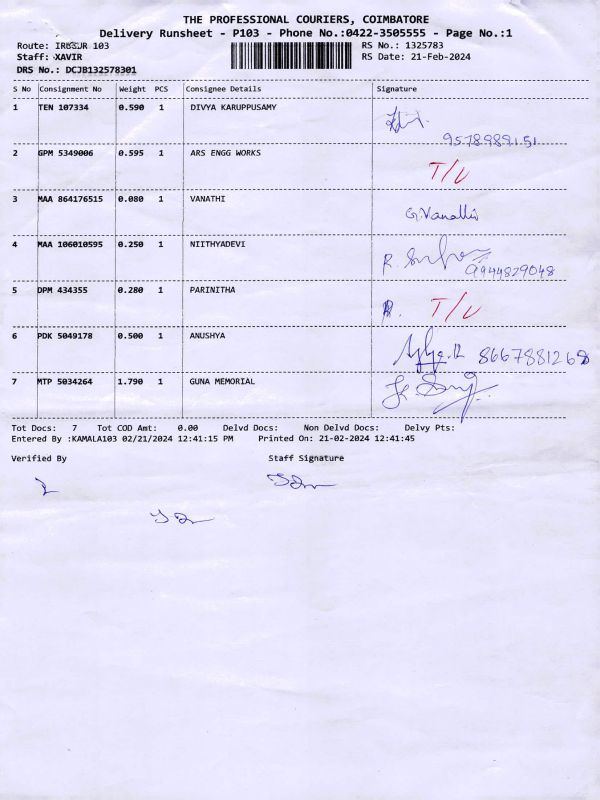 THE PROFESSIONAL COURIERS, COIMBATORE
Delivery Runsheet - P103 - Phone No.:0422-3505555 - Page No.:1
Route: IRUGUR 103 RS No.: 1325783
Staff: XAVIR RS Date: 21-Feb-2024
DRS No.: DCJB132578301
S No Consignment No Weight PCS Consignee Details Signature
1 TEN 107334 0.590 1 DIVYA KARUPPUSAMY
9578989151
2 GPM 5349006 0.595 1 ARS ENGG WORKS T/L
3 MAA 864176515 0.080 1 VANATHI
G.Vanathi
4 MAA 106010595 0.250 1 NIITHYADEVI
9944829048
5 DPM 434355 0.280 1 PARINITHA T/L
6 PDK 5049178 0.500 1 ANUSHYA
8667881268
7 MTP 5034264 1.790 1 GUNA MEMORIAL
Tot Docs: 7 Tot COD Amt: 0.00 Delvd Docs: Non Delvd Docs: Delvy Pts:
Entered By :KAMALA103 02/21/2024 12:41:15 PM Printed On: 21-02-2024 12:41:45
Verified By Staff Signature